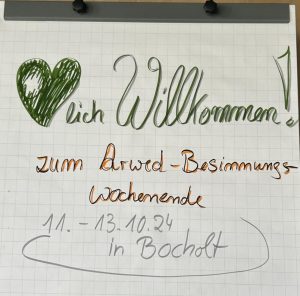 ♥lich Willkommen!
zum Arwed-Besinnungs-
wochenende
11. - 13.10.24
in Bocholt